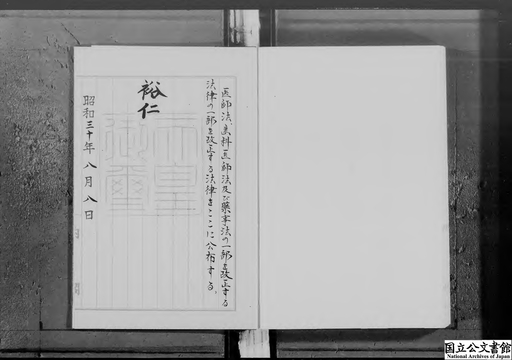 医師法、歯科医師法及び薬事法の一部を改正する
法律の一部を改正する法律をここに公布する。
裕仁
天皇
御璽
昭和三十年八月八日
国立公文書館
National Archives of Japan